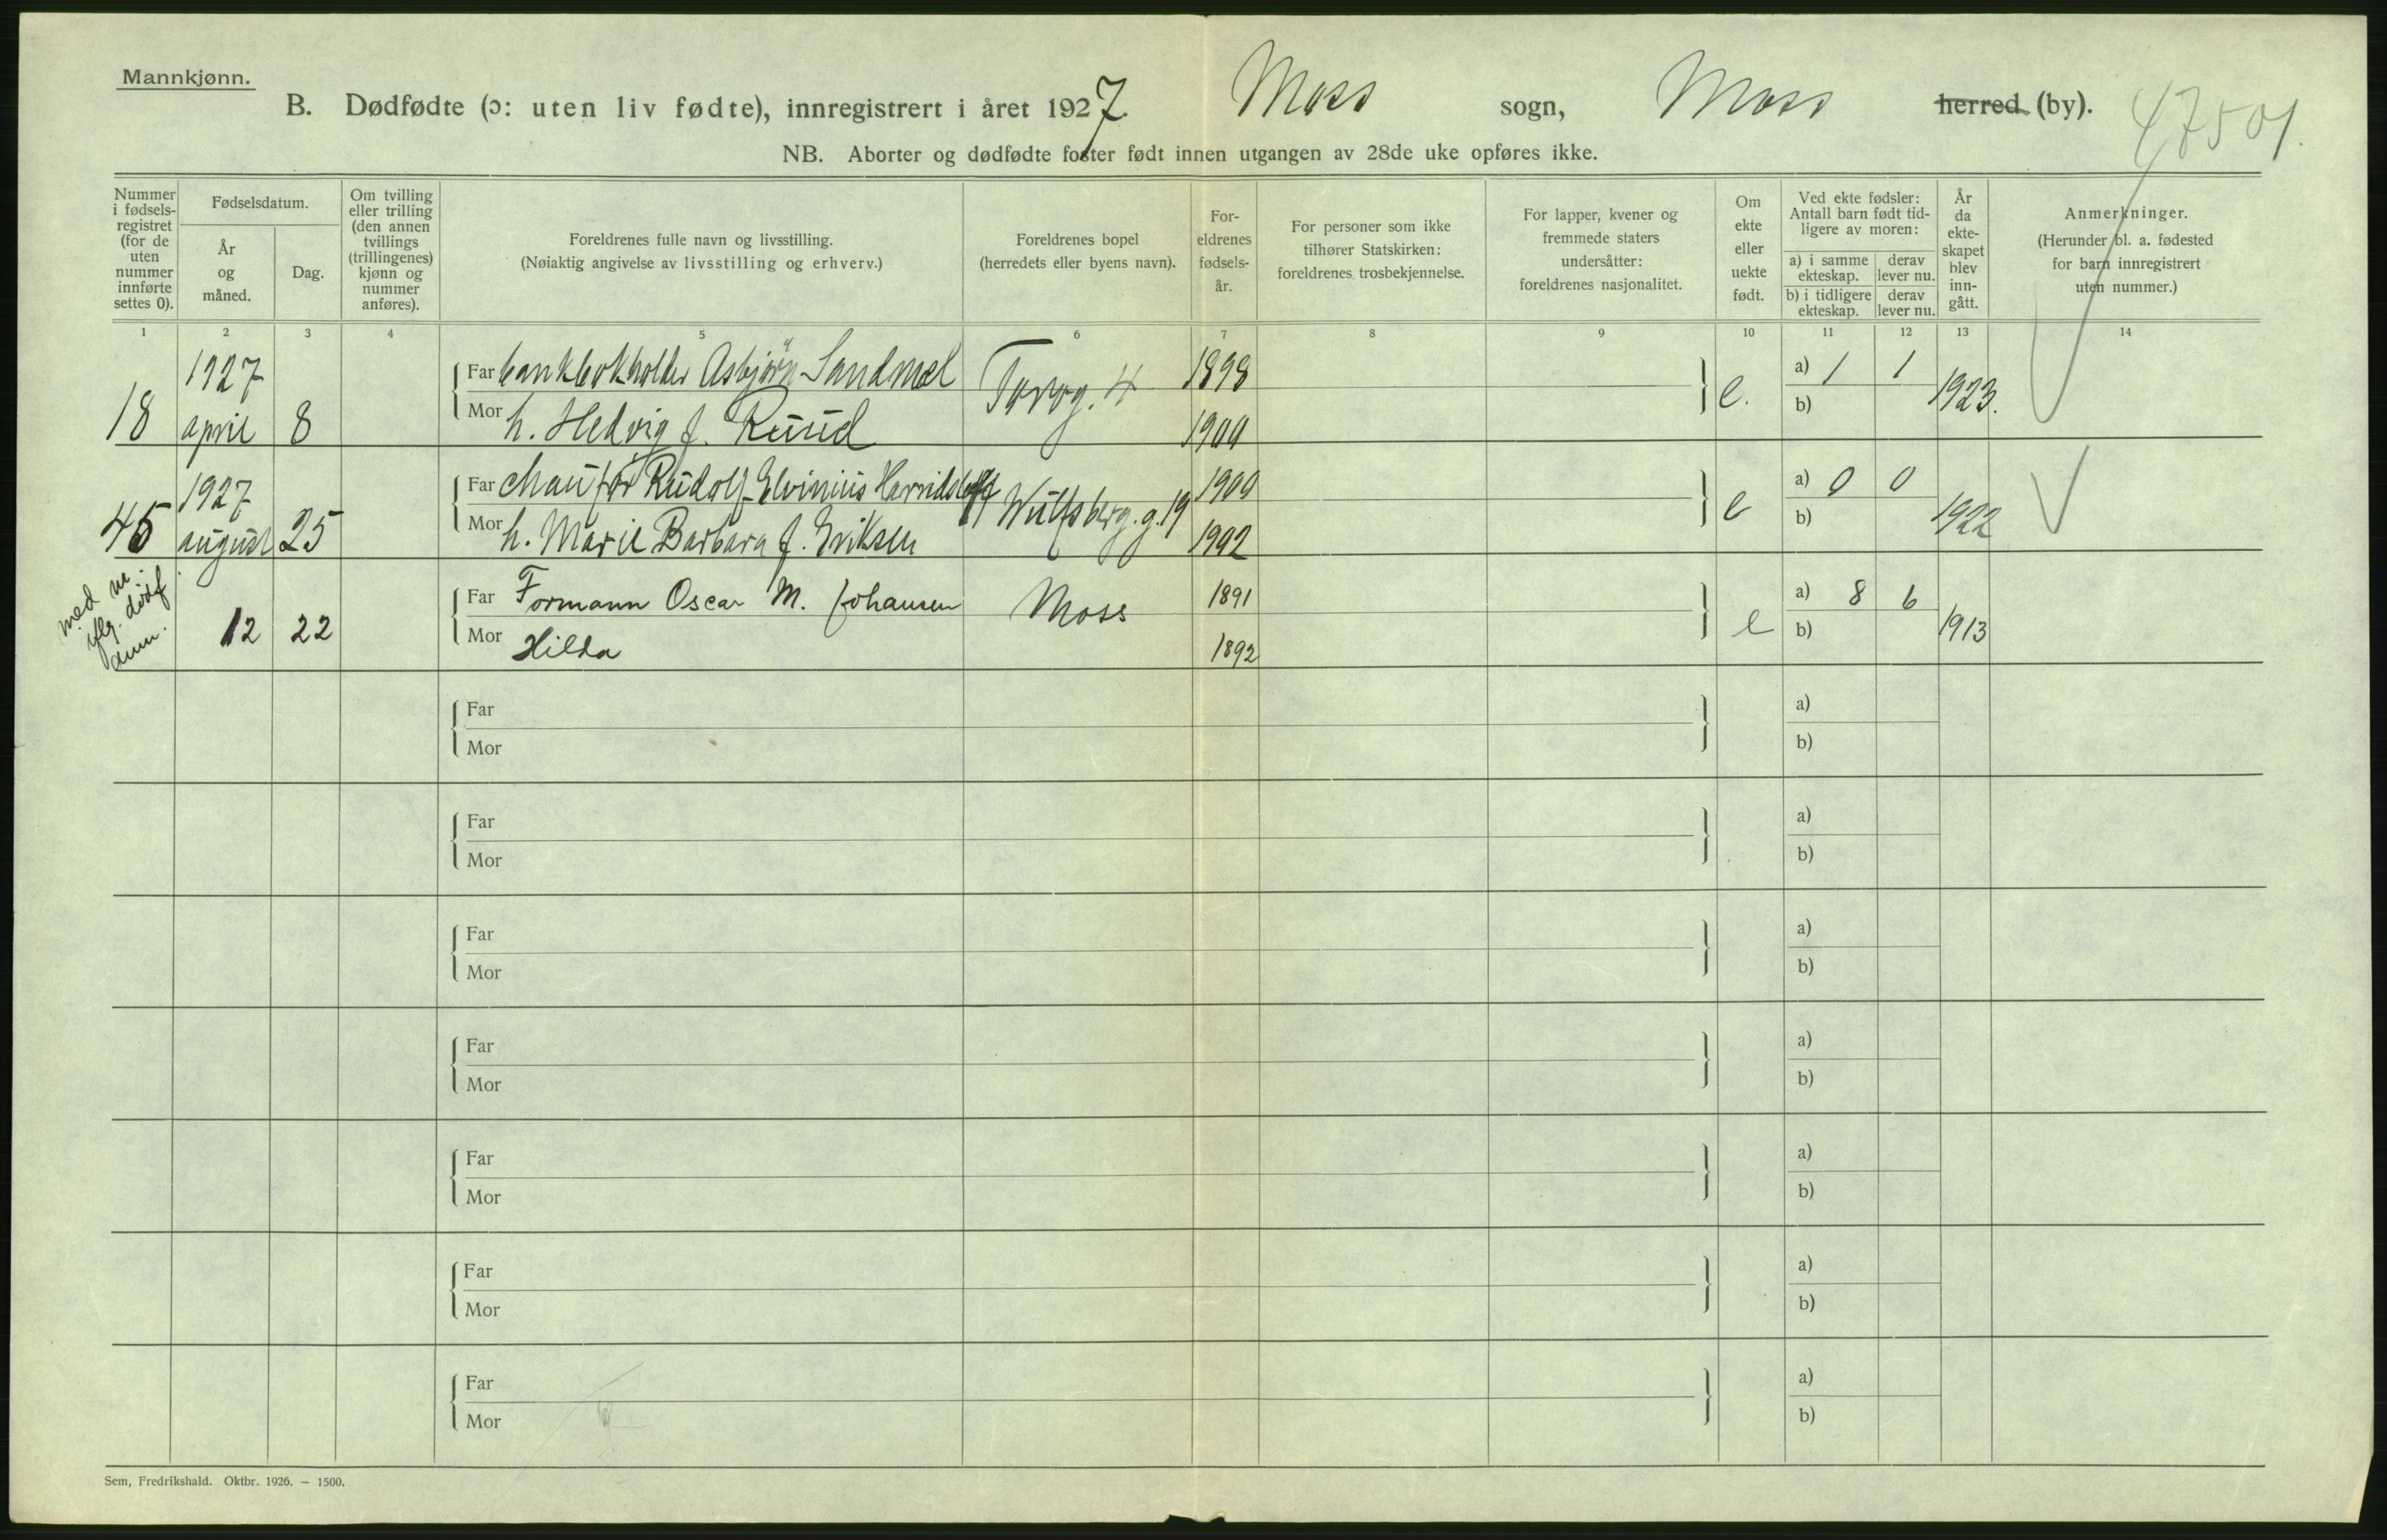 Mannkjønn.
B. Dødfødte (ɔ: uten liv fødte), innregistrert i året 1927. Moss sogn, Moss herred (by).
47501.
NB. Aborter og dødfødte foster født innen utgangen av 28de uke opføres ikke.
Nummer i fødsels-registret (for de uten nummer innførte settes 0).
Fødselsdatum.
År og måned.
Dag.
Om tvilling eller trilling (den annen tvillings (trillingenes) kjønn og nummer anføres).
Foreldrenes fulle navn og livsstilling.
(Nøiaktig angivelse av livsstilling og erhverv.)
Foreldrenes bopel
(herredets eller byens navn).
For-eldrenes fødsels-år.
For personer som ikke tilhører Statskirken: foreldrenes trosbekjennelse.
For lapper, kvener og fremmede staters undersåtter: foreldrenes nasjonalitet.
Om ekte eller uekte født.
Ved ekte fødsler: Antall barn født tid-ligere av moren:
a) i samme ekteskap. derav lever nu.
b) i tidligere ekteskap. derav lever nu.
År da ekte-skapet blev inn-gått.
Anmerkninger.
(Herunder bl. a. fødested for barn innregistrert uten nummer.)
1 2 3 4 5 6 7 8 9 10 11 12 13 14
1927
Far bankbokholder Asbjörn Sandmæl 1898 a) 1 1
18 april 8 Mor h. Hedvig f. Ruud 1900 e. b) 1923.
1927
Far Rudolf Elvinius 1900 a) 0 0
45 august 25 Mor h. Marie Barbara f. Eriksen Wulfsberg.g. 19 1902 e b) 1922
Far Formann Oscar M. Johansen Moss 1891 a) 8 6
12 22 Mor Hilda 1892 e b) 1913
Far a)
Mor b)
Far a)
Mor b)
Far a)
Mor b)
Far a)
Mor b)
Far a)
Mor b)
Far a)
Mor b)
Far a)
Mor b)
Sem, Fredrikshald. Oktbr. 1926. – 1500.